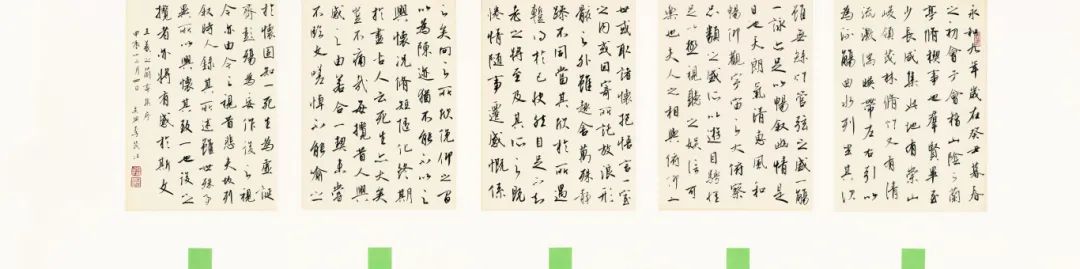 永和九年歲在癸丑暮春
之初會于會稽山陰之蘭
亭脩禊事也羣賢畢至
少長咸集此地有崇山
峻領茂林脩竹又有清
流激湍暎帶左右引以
為流觴曲水列坐其次
雖無絲竹管弦之盛一觴
一詠亦足以暢敘幽情是
日也天朗氣清惠風和
暢仰觀宇宙之大俯察
品類之盛所以遊目騁懷
足以極視聽之娛信可
樂也夫人之相與俯仰一
世或取諸懷抱悟言一室
之內或因寄所託放浪形
骸之外雖趣舍萬殊靜
躁不同當其欣於所遇
蹔得於己快然自足不知
老之將至及其所之既
惓情隨事遷感慨係
之矣向之所欣俛仰之間
以為陳迹猶不能不以之
興懷況脩短隨化終期
於盡古人云死生亦大矣
豈不痛哉每攬昔人興
感之由若合一契未嘗
不臨文嗟悼不能喻之
於懷固知一死生為虛誕
齊彭殤為妄作後之視
今亦由今之視昔悲夫故列
敘時人錄其所述雖世殊事
異所以興懷其致一也後之
攬者亦將有感於斯文
王羲之蘭亭集序
甲辰十二月四日